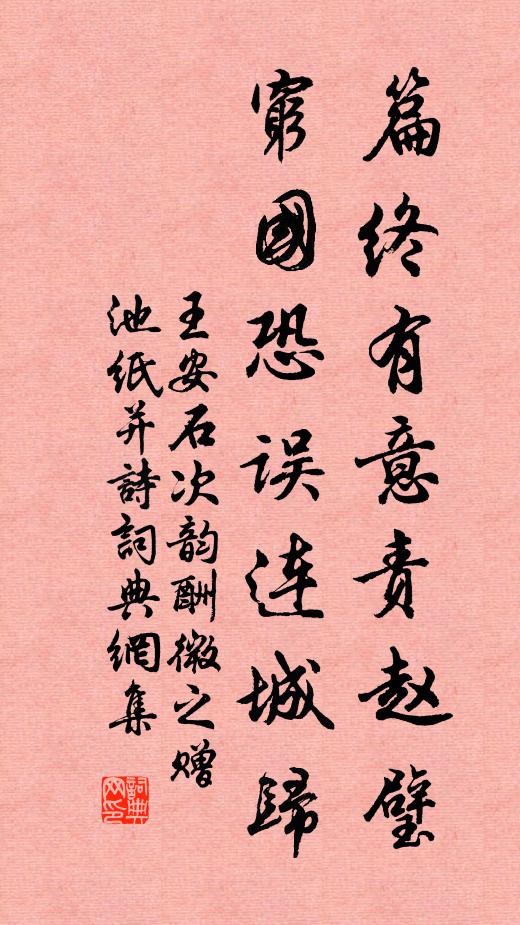 篇终有意责赵璧
窮國恐误连城歸
王安石次韵酬微之赠
池纸并詩詞典網集
詞典
网印